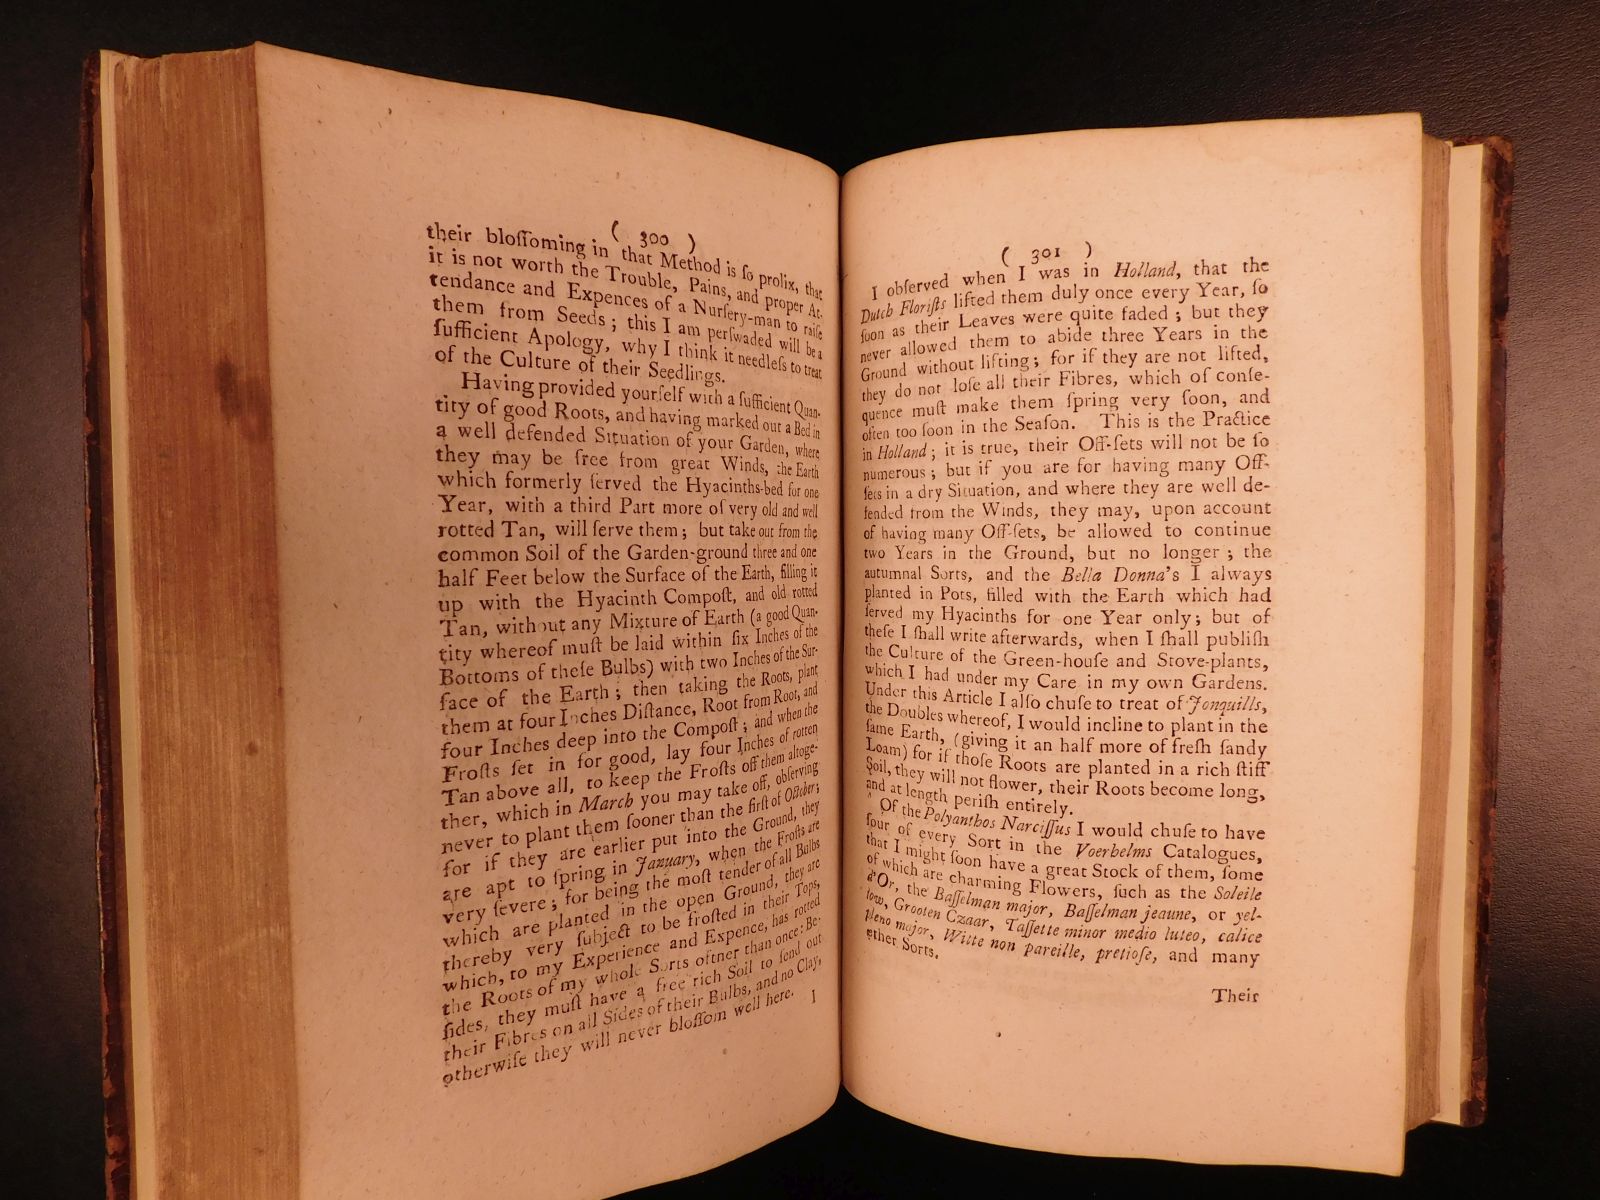 ( 300 )
their bloſſoming in that Method is ſo prolix, that
it is not worth the Trouble, Pains, and proper At-
tendance and Expences of a Nurſery-man to raiſe
them from Seeds ; this I am perſwaded will be a
ſufficient Apology, why I think it needleſs to treat
of the Culture of their Seedlings.
Having provided yourſelf with a ſufficient Quan-
tity of good Roots, and having marked out a Bed in
a well defended Situation of your Garden, where
they may be free from great Winds, the Earth
which formerly ſerved the Hyacinths-bed for one
Year, with a third Part more of very old and well
rotted Tan, will ſerve them ; but take out from the
common Soil of the Garden-ground three and one
half Feet below the Surface of the Earth, filling it
up with the Hyacinth Compoſt, and old rotted
Tan, without any Mixture of Earth (a good Quan-
tity whereof muſt be laid within ſix Inches of the
Bottoms of theſe Bulbs) with two Inches of the Sur-
face of the Earth ; then taking the Roots, plant
them at four Inches Diſtance, Root from Root, and
four Inches deep into the Compoſt ; and when the
Froſts ſet in for good, lay four Inches of rotten
Tan above all, to keep the Froſts off them altoge-
ther, which in March you may take off, obſerving
never to plant them ſooner than the firſt of October ;
for if they are earlier put into the Ground, they
are apt to ſpring in January, when the Froſts are
very ſevere ; for being the moſt tender of all Bulbs
which are planted in the open Ground, they are
thereby very ſubject to be froſted in their Tops,
which, to my Experience and Expence, has rotted
the Roots of my whole Sorts oftner than once : Be-
ſides, they muſt have a free rich Soil to ſend out
their Fibres on all Sides of their Bulbs, and no Clay,
otherwiſe they will never bloſſom well here.
I
( 301 )
I obſerved when I was in Holland, that the
Dutch Floriſts lifted them duly once every Year, ſo
ſoon as their Leaves were quite faded ; but they
never allowed them to abide three Years in the
Ground without lifting ; for if they are not lifted,
they do not loſe all their Fibres, which of conſe-
quence muſt make them ſpring very ſoon, and
often too ſoon in the Seaſon. This is the Practice
in Holland ; it is true, their Off-ſets will not be ſo
numerous ; but if you are for having many Off-
ſets in a dry Situation, and where they are well de-
fended from the Winds, they may, upon account
of having many Off-ſets, be allowed to continue
two Years in the Ground, but no longer ; the
autumnal Sorts, and the Bella Donna's I always
planted in Pots, filled with the Earth which had
ſerved my Hyacinths for one Year only ; but of
theſe I ſhall write afterwards, when I ſhall publiſh
the Culture of the Green-houſe and Stove-plants,
which I had under my Care in my own Gardens.
Under this Article I alſo chuſe to treat of Jonquills,
the Doubles whereof, I would incline to plant in the
ſame Earth, (giving it an half more of freſh ſandy
Loam) for if thoſe Roots are planted in a rich ſtiff
Soil, they will not flower, their Roots become long,
and at length periſh entirely.
Of the Polyanthos Narciſſus I would chuſe to have
four of every Sort in the Voerhelms Catalogues,
that I might ſoon have a great Stock of them, ſome
of which are charming Flowers, ſuch as the Soleile
d'Or, the Baſſelman major, Baſſelman jeaune, or yel-
low, Grooten Czaar, Taſſette minor medio luteo, calice
pleno major, Witte non pareille, pretioſe, and many
other Sorts.
Their